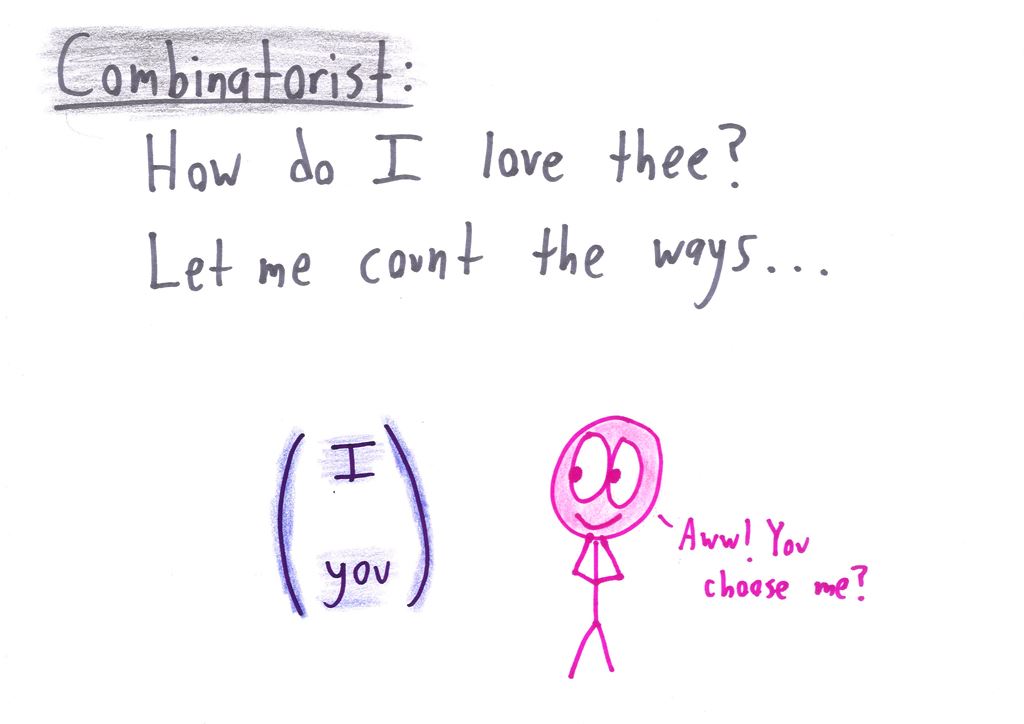 Combinatorist:
How do I love thee?
Let me count the ways...
(I
you)
Aww! You
choose me?